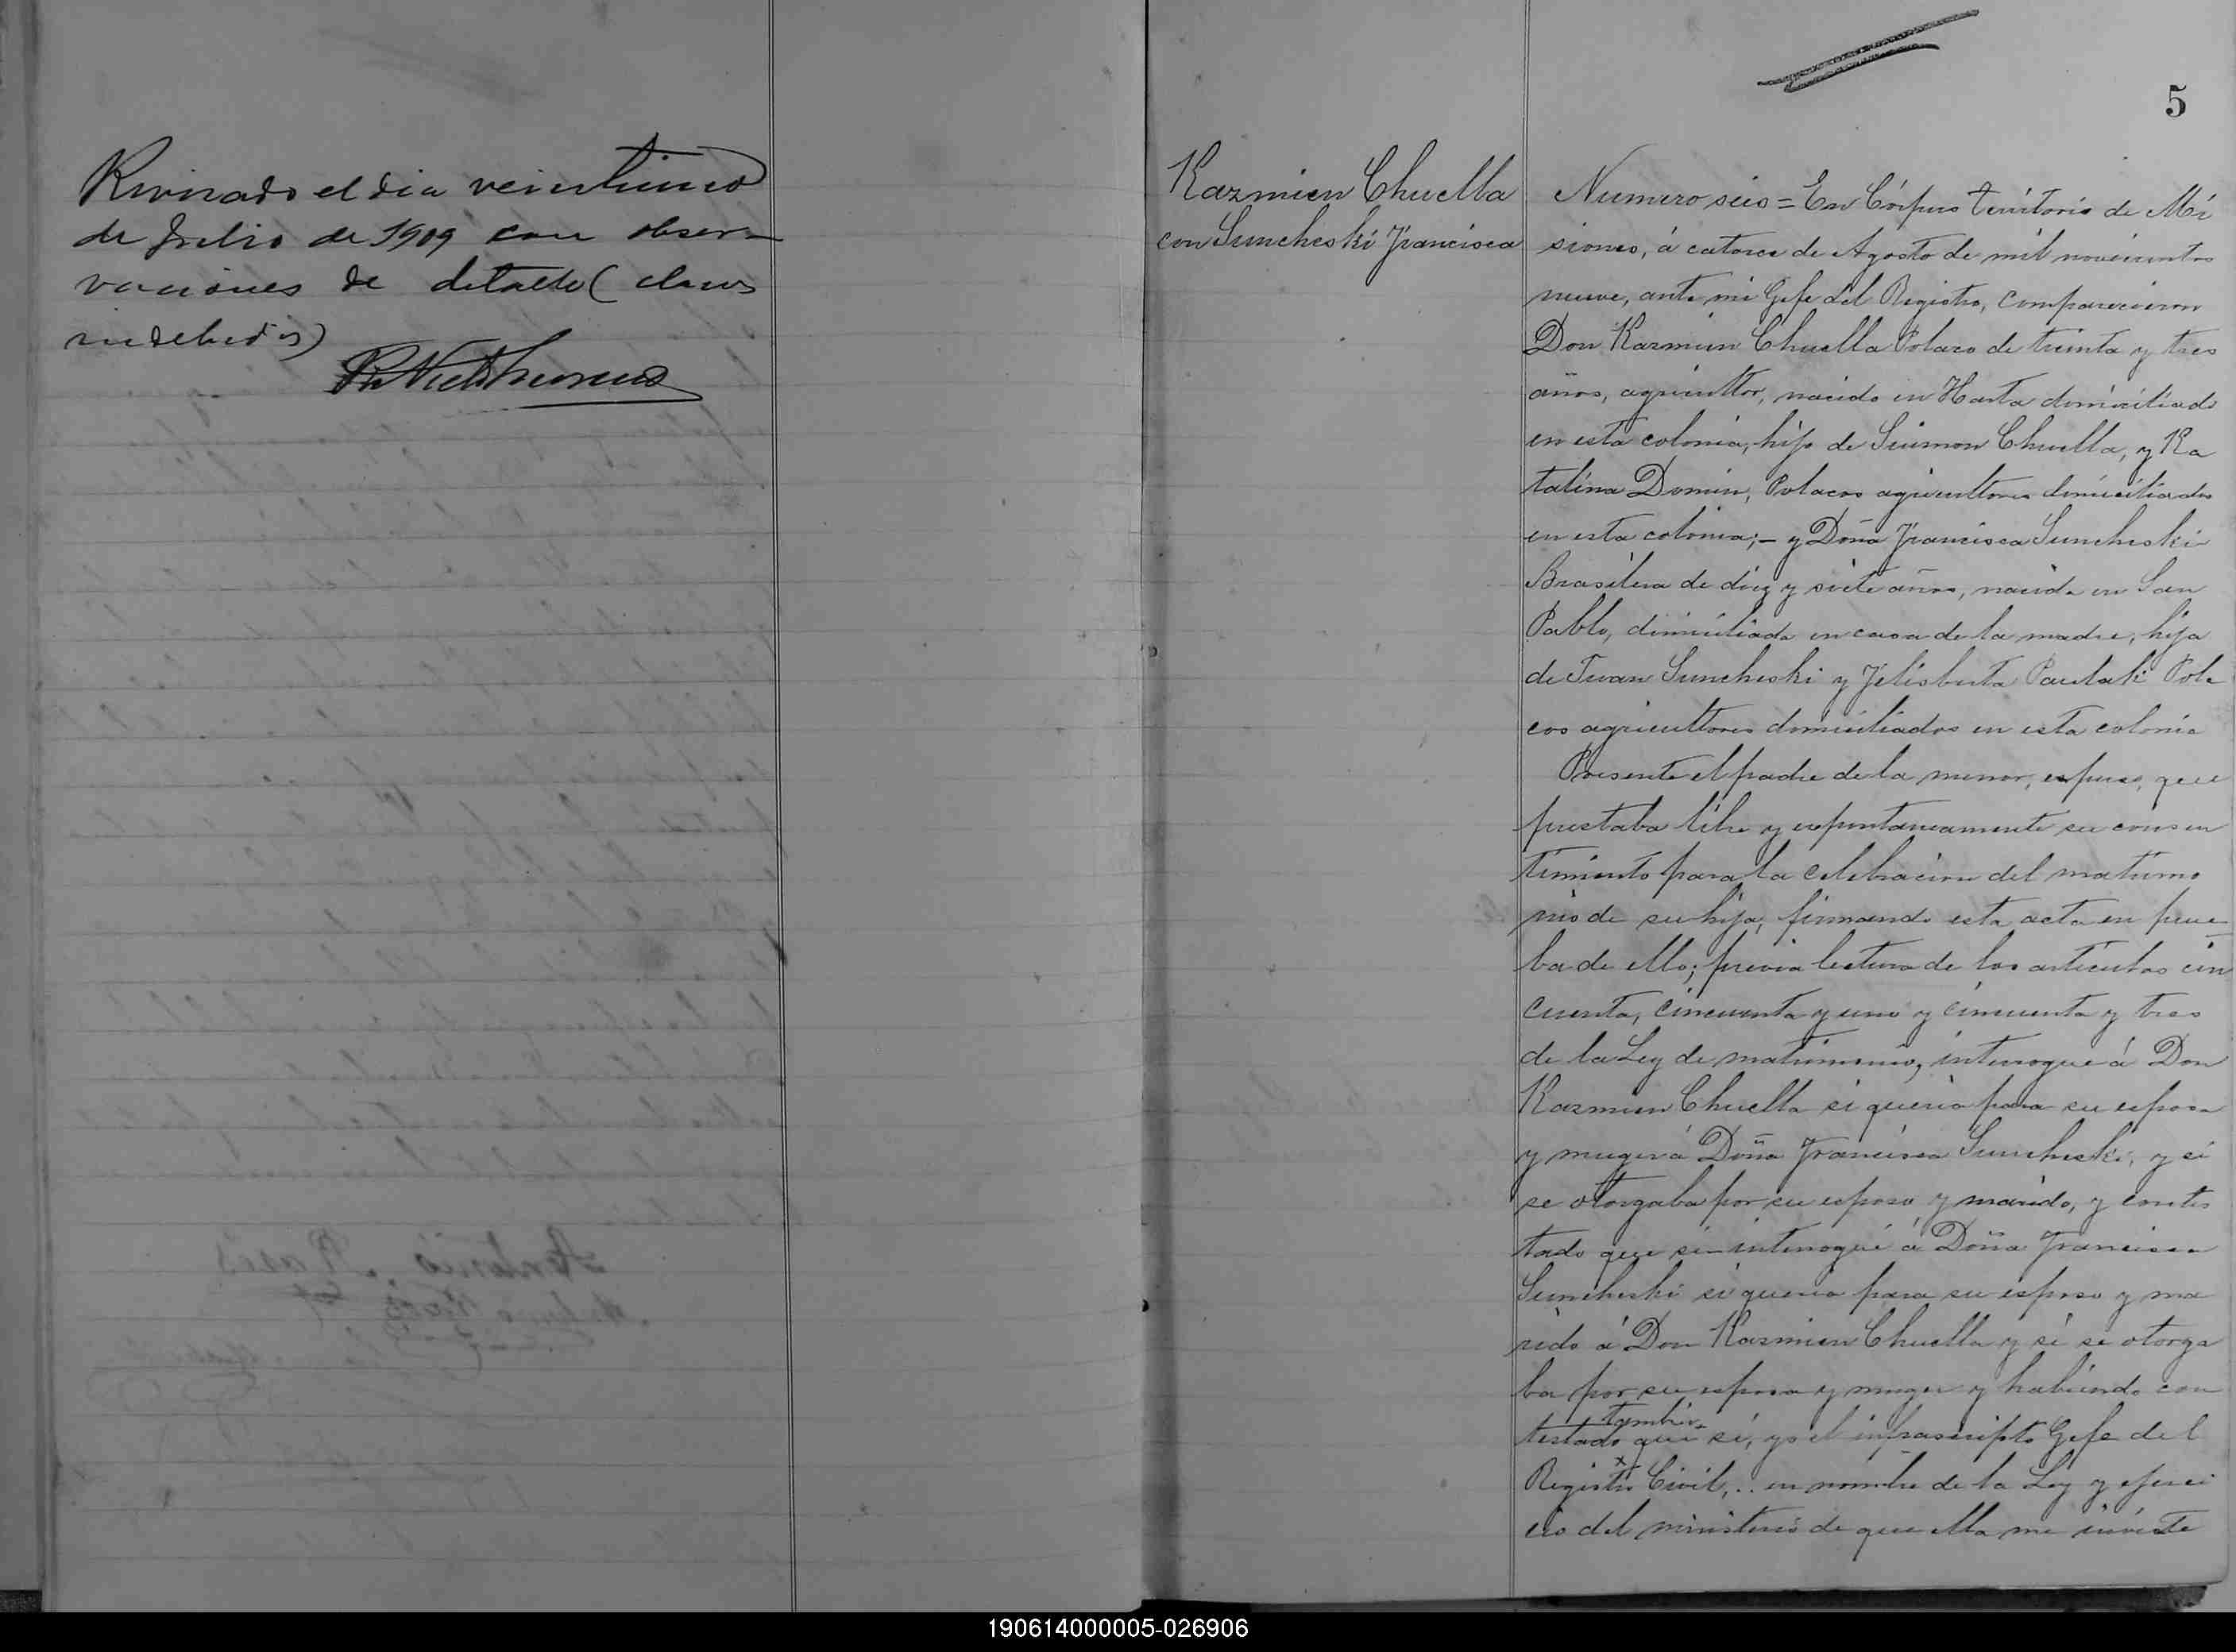 Revisado el dia veinticinco
de Julio de 1909 con obser-
vaciones de detalle (claros
indebidos)
5
Kazmien Chuella
con Suncheski Francisca
Numero seis = En Córpus territorio de Mi
siones, á catorce de Agosto de mil novecientos
nueve, ante mi Gefe del Registro, comparecieron
Don Kazmien Chuella Polaco de treinta y tres
años, agricultor, nacido en Harta domiciliado
en esta colonia, hijo de Seimon Chuella, y Ka
talina Domin, Polacos agricultores domiciliados
en esta colonia;- y Doña Francisca Suncheski
Brasilera de diez y siete años, nacida en San
Pablo, domiciliada en casa de la madre, hija
de Iwan Suncheski y Felisberta Pautaki Pola
cos agricultores domiciliados en esta colonia
Presente el padre de la menor, espuso, que
prestaba libre y espontaneamente su consen
timiento para la celebracion del matrimo
nio de su hija, firmando esta acta en prue
ba de ello; previa lectura de los articulos cin
cuenta, cincuenta y uno y cincuenta y tres
de la Ley de matrimonio, interrogue á Don
Kazmien Chuella si queria para su esposa
y muger á Doña Francisca Suncheski, y si
se otorgaba por su esposo y marido, y contes
tado que si interrogué á Doña Francisca
Suncheski si queria para su esposo y ma
rido á Don Kazmien Chuella y si se otorga
ba por su esposa y muger y habiendo con
tambien
testado que si, yo el infrascripto Gefe del
Registro Civil, .. en nombre de la Ley y ejerci
cio del ministerio de que ella me inviste
190614000005-026906